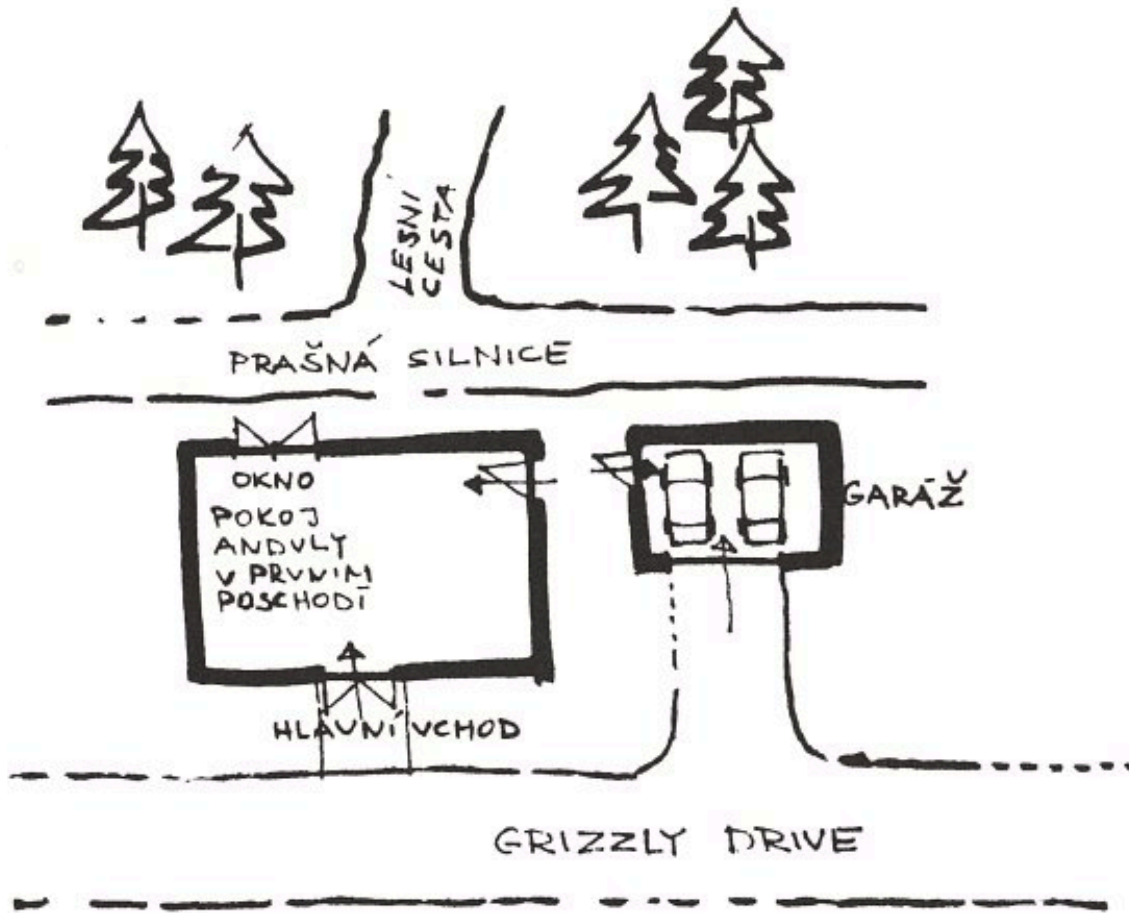 LESNI
CESTA
PRAŠNÁ SILNICE
OKNO
POKOJ
ANDULY
V PRVNIM
POSCHODÍ
GARÁŽ
HLAVNÍ VCHOD
GRIZZLY DRIVE